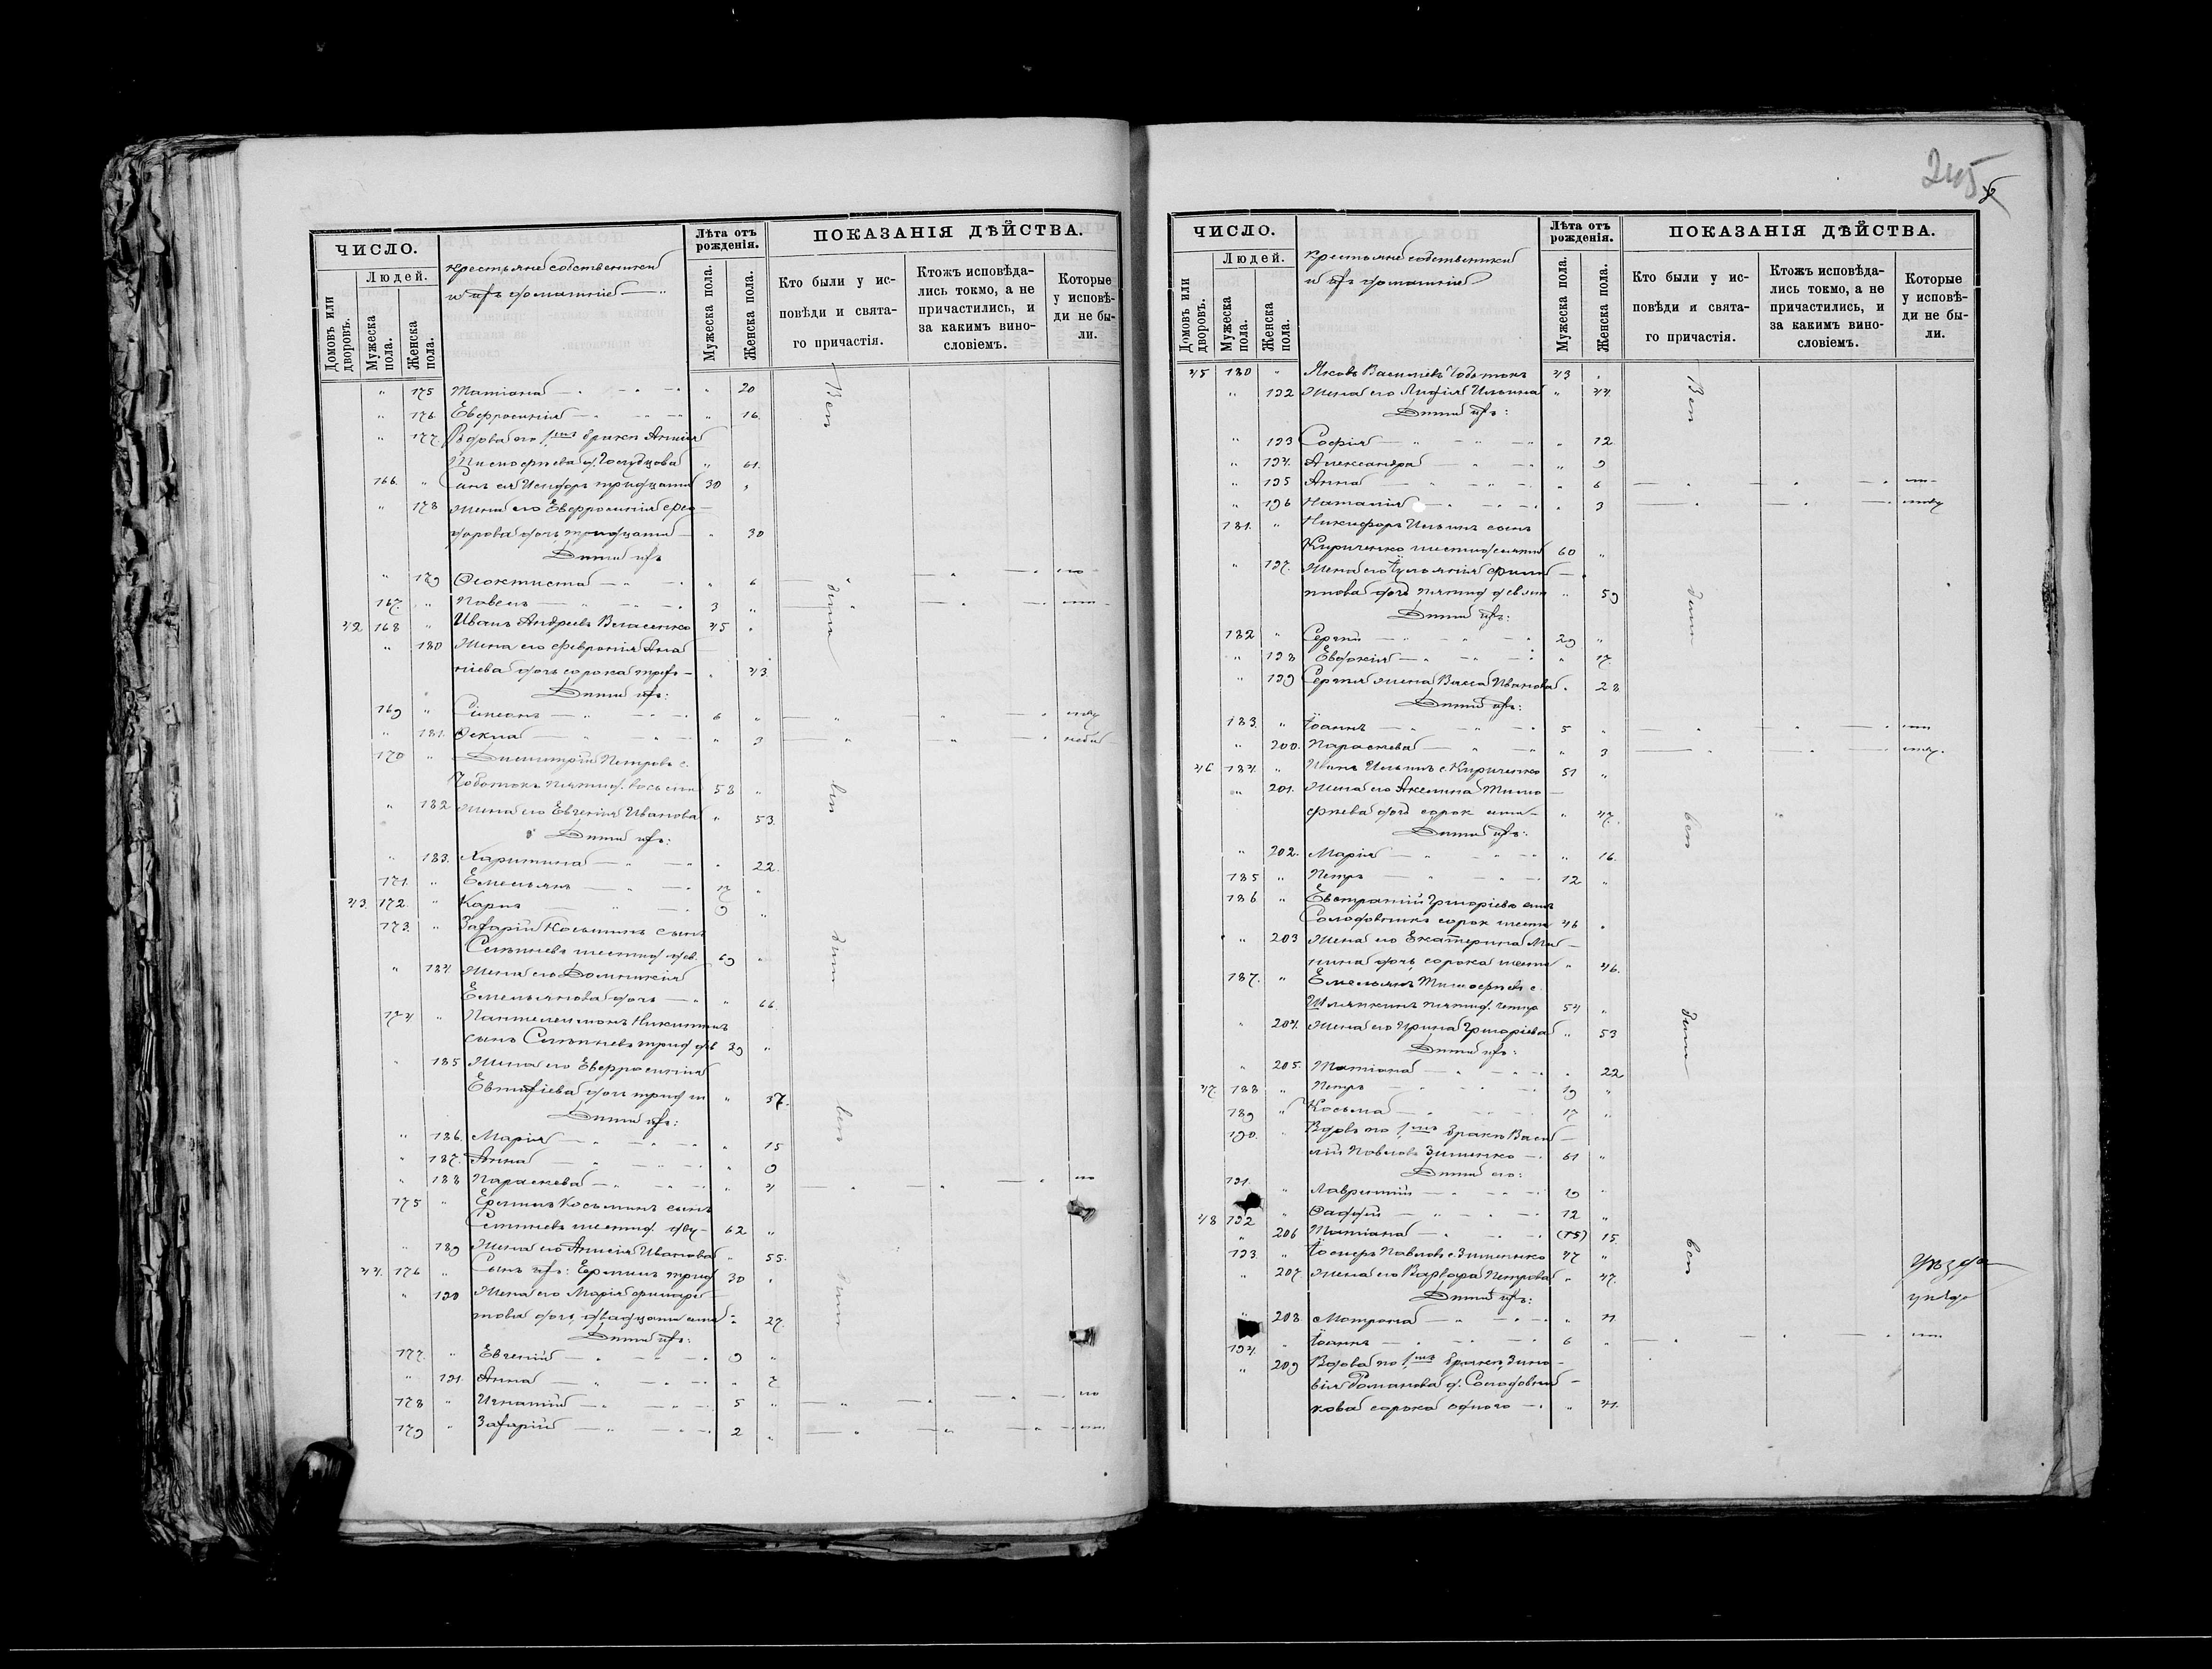 245
ЧИСЛО.
Людей.
Домовъ или дворовъ.
Мужеска пола.
Женска пола.
крестьяне собственники
и ихъ домашніе
Лѣта отъ рожденія.
Мужеска пола.
Женска пола.
ПОКАЗАНІЯ ДѢЙСТВА.
Кто были у ис-
повѣди и свята-
го причастія.
Ктожъ исповѣда-
лись токмо, а не
причастились, и
за какимъ вино-
словіемъ.
Которые
у исповѣ-
ди не бы-
ли.
" 175 Татіана " 20
" 176 Евфросинія " 16
" 177 Вдова по 1мъ бракѣ Анисія
Тимофѣева д. 61.
166. " Сынъ ея Исидоръ тридцати 30 "
" 178 Жена его Евфросинія Фео-
дорова дочь тридцати " 30
Дѣти ихъ
" 179 Феоктиста " 6
167. " Павелъ 3 "
42 168 " Иванъ Андреевъ Власенко 45 "
" 180 Жена его Февронія Ана
ніева дочь сорока трехъ " 43.
Дѣти ихъ:
169 " Симеонъ 6 "
" 181. Фекла " 3
170 " Димитрій Петровъ с.
Чоботокъ пятид. восьми 58 "
" 182 Жена его Евгенія Иванова " 53.
Дѣти ихъ:
" 183. Харитина " 22.
171. " Емельянъ 17 "
43. 172. " Карпъ 9 "
173. " Захарій Косьминъ сынъ
шестид. дев. 69 "
" 184 Жена его Домникія
Емельянова дочь " 66.
174. " Пантелеимонъ Никитинъ
сынъ трид. дев 39 "
" 185 Жена его Евфросинія
Евтихіева дочь трид. " 37.
Дѣти ихъ:
" 186. Марія " 15
" 187. Анна " 9
" 188 Параскева " 4
175 " Ермилъ Косьминъ сынъ
шестид. дву- 62 "
" 189 Жена его Анисія Иванова " 55.
44. 176 " Сынъ ихъ: Ермилъ трид 30 "
" 190 Жена его Марія
дочь двадцати семи " 27.
Дѣти ихъ:
177. " Евгеній 9 "
" 191. Анна " 7
178 " Игнатій 5 "
179 " Захарій 2 "
Вси
дѣти
вси
дѣти
вси
дѣти
ЧИСЛО.
Людей.
Домовъ или дворовъ.
Мужеска пола.
Женска пола.
Крестьяне собственники
и ихъ домашніе
Лѣта отъ рожденія.
Мужеска пола.
Женска пола.
ПОКАЗАНІЯ ДѢЙСТВА.
Кто были у ис-
повѣди и свята-
го причастія.
Ктожъ исповѣда-
лись токмо, а не
причастились, и
за какимъ вино-
словіемъ.
Которые
у исповѣ-
ди не бы-
ли.
45 180 " Яковъ Василіевъ Чоботокъ 43 "
" 192 Жена его Лидія Ильина " 44.
Дѣти ихъ:
" 193 Софія " 12
" 194. Александра " 9
" 195 Анна " 6
" 196 Наталія " 3
181. " Никифоръ Ильинъ сынъ
Кириченко шестидесяти 60 "
" 197. Жена его Іуліанія Фили
ппова дочь пятид. девяти " 59
Дѣти ихъ:
182 " Сергій 29 "
" 198 Евдокія " 17.
" 199 Сергія жена Васса Иванова " 28
Дѣти ихъ:
183. " Іоаннъ 5 "
" 200. Параскева " 3
46 184. " Иванъ Ильинъ с. Кириченко 51 "
" 201. Жена его Акилина Тимо
фѣева дочь сорок семи " 47.
Дѣти ихъ:
" 202. Марія " 16.
185 " Петръ 12 "
186 " Евстратій Григоріевъ сынъ
Солодовникъ сорок шести 46 "
" 203 Жена его Екатерина
дочь сорока шести " 46.
187. " Емельянъ Тимофѣевъ с.
Шляпкинъ пятид. четыр 54 "
" 204. Жена его Ирина Григоріева " 53
Дѣти ихъ:
" 205. Татіана " 22
47. 188 " Петръ 19 "
189 " Косьма 17 "
190. " Вдовъ по 1мъ бракѣ Васи
лій Павловъ Зинченко 61 "
Дѣти его:
191. " Лаврентій 19 "
48 192 " Фаддей 12 "
" 206 Татіана (15) 15
193. " Іосифъ Павловъ с. Зинченко 47 "
" 207. Жена его Варвара Петрова " 47.
Дѣти ихъ:
" 208 Матрона " 11
194. " Іоаннъ 6 "
" 209 Вдова по 1мъ бракѣ Зино-
вія Романова д. Солодовни-
кова сорока одного " 41.
Вси
дѣти
вси
дѣти
вси